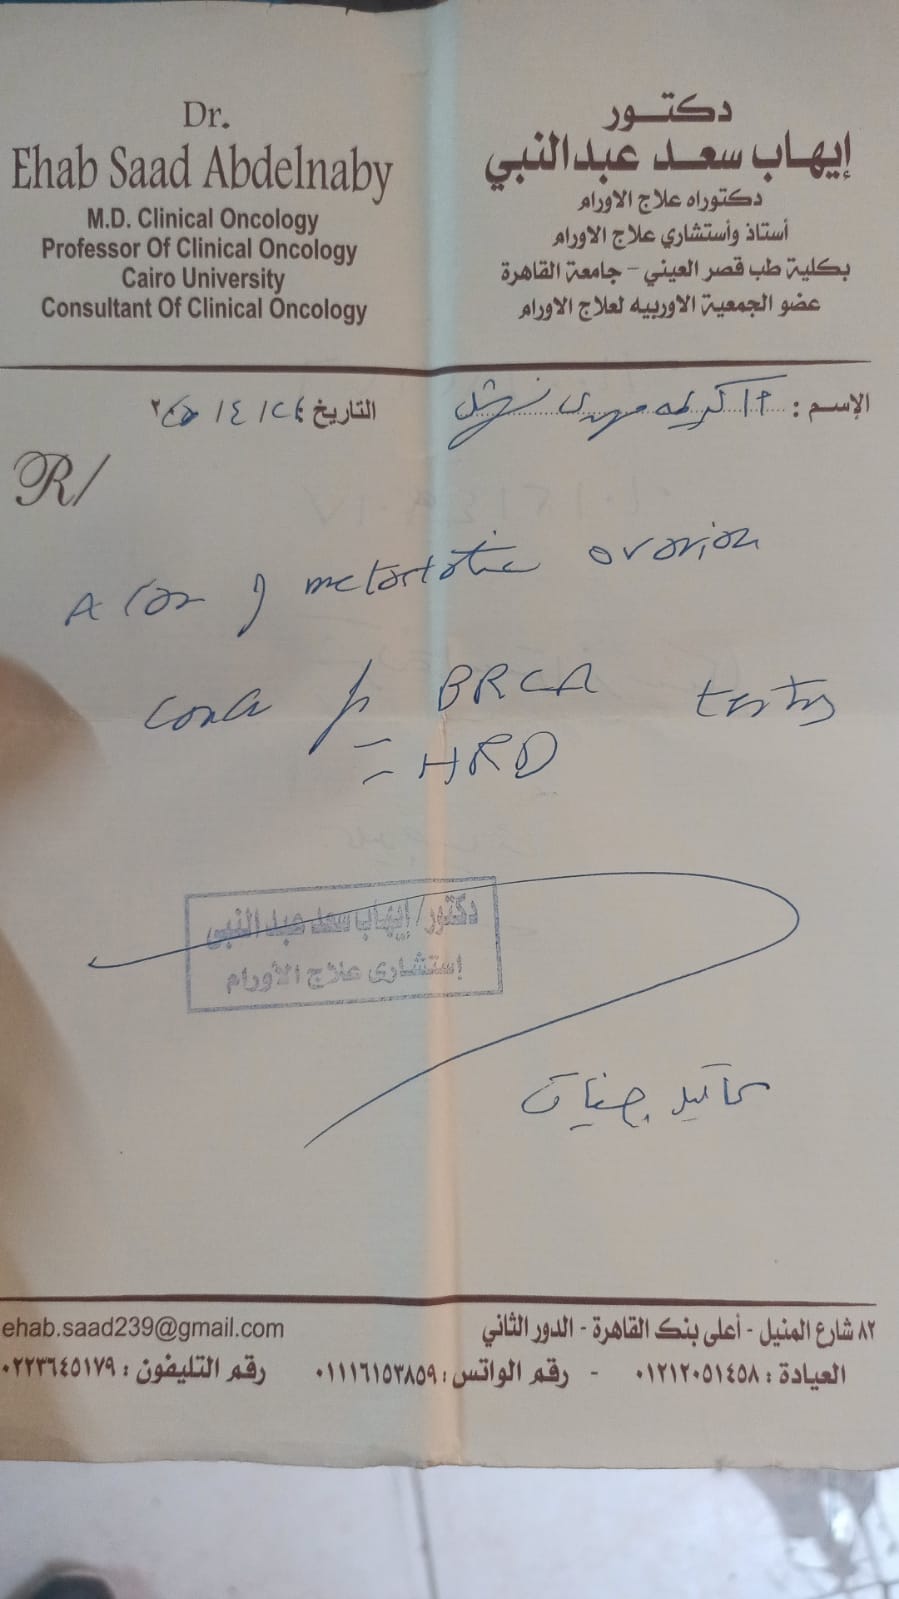 Dr.
Ehab Saad Abdelnaby
M.D. Clinical Oncology
Professor Of Clinical Oncology
Cairo University
Consultant Of Clinical Oncology
دكتور
إيهاب سعد عبدالنبي
دكتوراه علاج الاورام
أستاذ وأستشاري علاج الاورام
بكلية طب قصر العيني - جامعة القاهرة
عضو الجمعية الاوربيه لعلاج الاورام
الإسم :
التاريخ ٢٤ / ٤ /
R/
A metastatic ovarian
BRCA
= HRD
دكتور / إيهاب سعد عبد النبى
إستشارى علاج الأورام
٨٢ شارع المنيل - أعلى بنك القاهرة - الدور الثاني
ehab.saad239@gmail.com
العيادة : ٠١٢١٢٠٥١٤٥٨ - رقم الواتس : ٠١١١٦١٥٣٨٥٩ رقم التليفون : ٠٢٢٣٦٤٥١٧٩